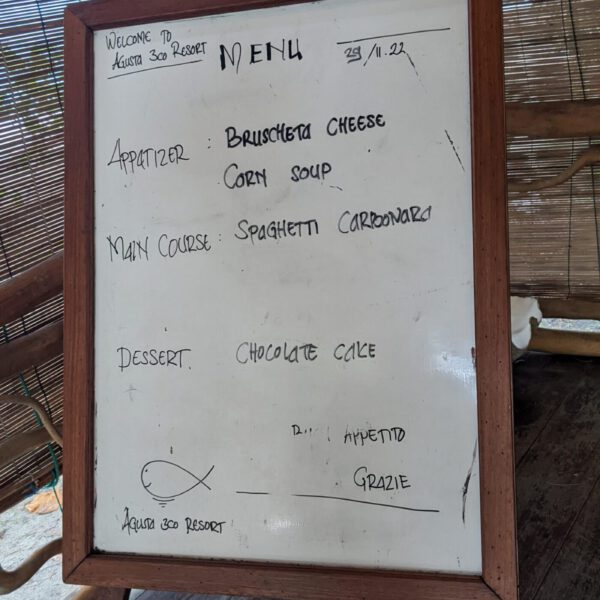 WELCOME TO
AGUSTA ECO RESORT
MENU
29/11.22
APPATIZER : BRUSCHETA CHEESE
CORN SOUP
MAIN COURSE : SPAGHETTI CARBONARA
DESSERT. CHOCOLATE CAKE
APPETITO
GRAZIE
AGUSTA ECO RESORT